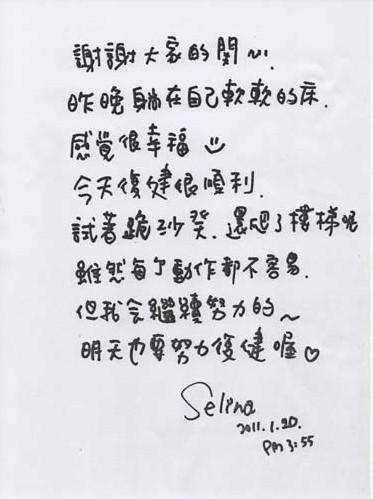 謝謝大家的関心.
昨晚躺在自己軟軟的床.
感覺很幸福
今天復健很順利.
試著跪沙發.還爬了樓梯呢
雖然每了動作都不容易.
但我会繼續努力的~
明天也要努力復健喔♡
Selina
2011.1.20.
PM 3:55